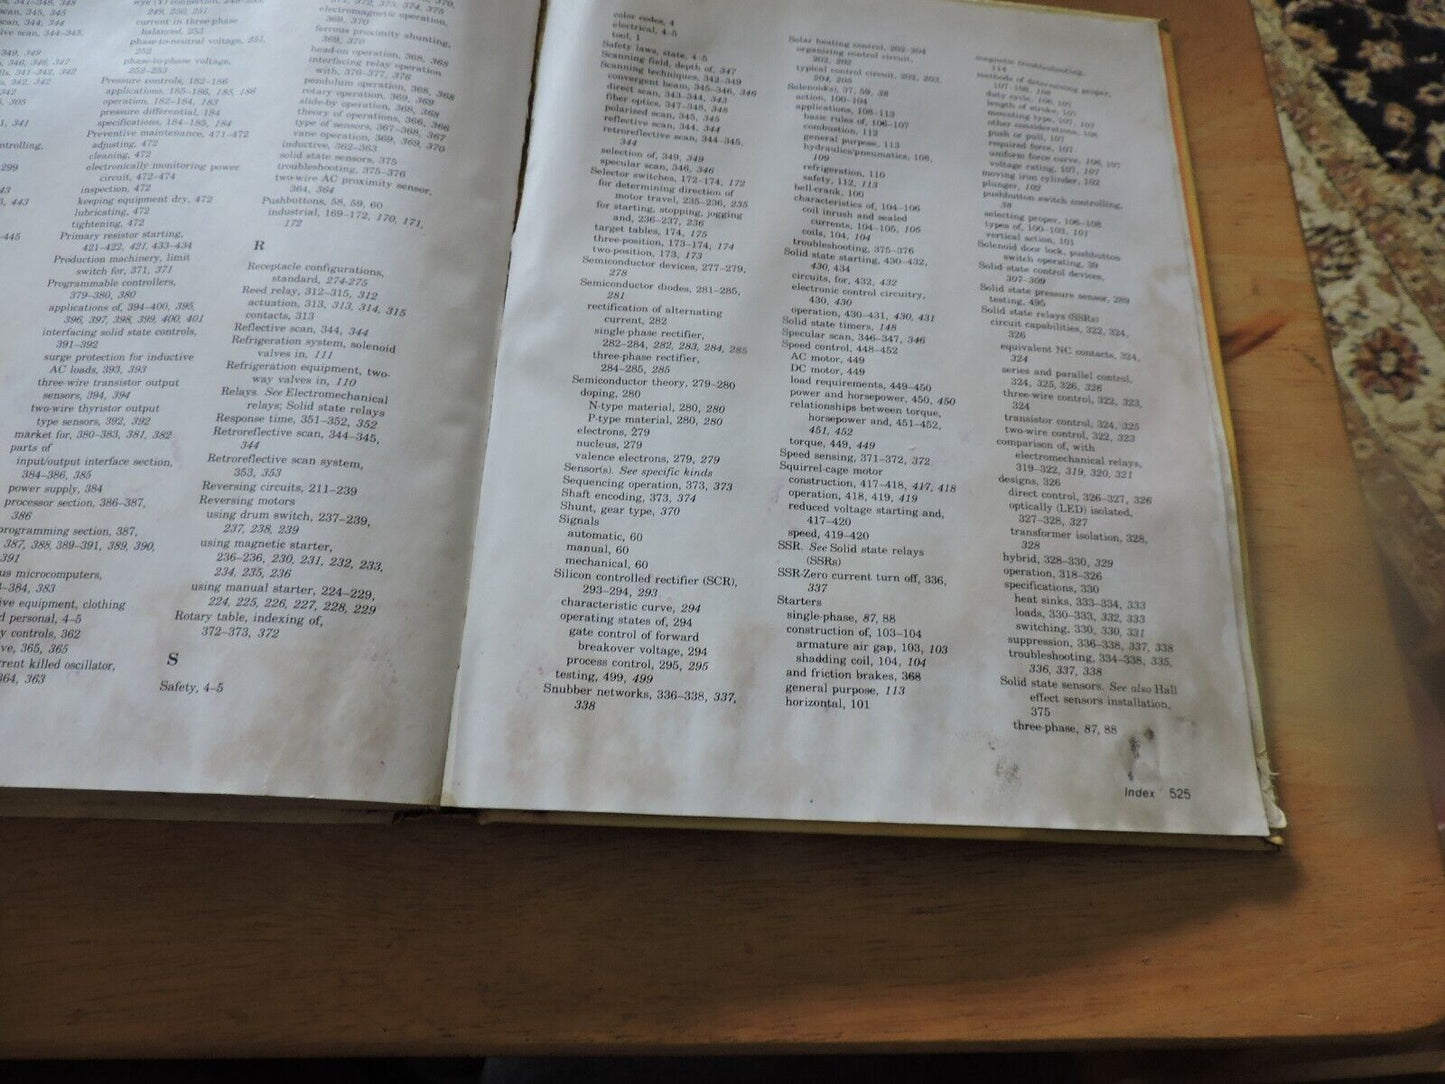 347–348, 348
scan, 344, 344
scan, 344–345,
349, 349
346, 346, 347
341–342, 342
342, 342
342
305
341
ntrolling,
299
43
443
–445
249, 250, 251
current in three-phase
balanced, 253
phase-to-neutral voltage, 251,
252
phase-to-phase voltage,
252–253
Pressure controls, 182–186
applications, 185–186, 185, 186
operation, 182–184, 183
pressure differential, 184
specifications, 184–185, 184
Preventive maintenance, 471–472
adjusting, 472
cleaning, 472
electronically monitoring power
circuit, 472–474
inspection, 472
keeping equipment dry, 472
lubricating, 472
tightening, 472
Primary resistor starting,
421–422, 421, 433–434
Production machinery, limit
switch for, 371, 371
Programmable controllers,
379–380, 380
applications of, 394–400, 395,
396, 397, 398, 399, 400, 401
interfacing solid state controls,
391–392
surge protection for inductive
AC loads, 393, 393
three-wire transistor output
sensors, 394, 394
two-wire thyristor output
type sensors, 392, 392
market for, 380–383, 381, 382
parts of
input/output interface section,
384–386, 385
power supply, 384
processor section, 386–387,
386
programming section, 387,
387, 388, 389–391, 389, 390,
391
us microcomputers,
–384, 383
ive equipment, clothing
d personal, 4–5
y controls, 362
ve, 365, 365
rent killed oscillator,
364, 363
electromagnetic operation,
369, 370
ferrous proximity shunting,
369, 370
head-on operation, 368, 368
interfacing relay operation
with, 376–377, 376
pendulum operation, 368, 368
rotary operation, 369, 369
slide-by operation, 368, 368
theory of operations, 366, 366
type of sensors, 367–368, 367
vane operation, 369, 369, 370
inductive, 362–363
solid state sensors, 375
troubleshooting, 375–376
two-wire AC proximity sensor,
364, 364
Pushbuttons, 58, 59, 60
industrial, 169–172, 170, 171,
172
R
Receptacle configurations,
standard, 274-275
Reed relay, 312–315, 312
actuation, 313, 313, 314, 315
contacts, 313
Reflective scan, 344, 344
Refrigeration system, solenoid
valves in, 111
Refrigeration equipment, two-
way valves in, 110
Relays. See Electromechanical
relays; Solid state relays
Response time, 351–352, 352
Retroreflective scan, 344–345,
344
Retroreflective scan system,
353, 353
Reversing circuits, 211–239
Reversing motors
using drum switch, 237–239,
237, 238, 239
using magnetic starter,
236–236, 230, 231, 232, 233,
234, 235, 236
using manual starter, 224–229,
224, 225, 226, 227, 228, 229
Rotary table, indexing of,
372–373, 372
S
Safety, 4–5
color codes, 4
electrical, 4–5
tool, 1
Safety laws, state, 4–5
Scanning field, depth of, 347
Scanning techniques, 342–349
convergent beam, 345–346, 346
direct scan, 343–344, 343
fiber optics, 347–348, 348
polarized scan, 345, 345
reflective scan, 344, 344
retroreflective scan, 344–345,
344
selection of, 349, 349
specular scan, 346, 346
Selector switches, 172–174, 172
for determining direction of
motor travel, 235–236, 235
for starting, stopping, jogging
and, 236–237, 236
target tables, 174, 175
three-position, 173–174, 174
two-position, 173, 173
Semiconductor devices, 277–279,
278
Semiconductor diodes, 281–285,
281
rectification of alternating
current, 282
single-phase rectifier,
282–284, 282, 283, 284, 285
three-phase rectifier,
284–285, 285
Semiconductor theory, 279–280
doping, 280
N-type material, 280, 280
P-type material, 280, 280
electrons, 279
nucleus, 279
valence electrons, 279, 279
Sensor(s). See specific kinds
Sequencing operation, 373, 373
Shaft encoding, 373, 374
Shunt, gear type, 370
Signals
automatic, 60
manual, 60
mechanical, 60
Silicon controlled rectifier (SCR),
293–294, 293
characteristic curve, 294
operating states of, 294
gate control of forward
breakover voltage, 294
process control, 295, 295
testing, 499, 499
Snubber networks, 336–338, 337,
338
Solar heating control, 202–204
organizing control circuit,
202, 202
typical control circuit, 202, 203,
204, 205
Solenoid(s), 37, 59, 38
action, 100–104
applications, 108–113
basic rules of, 106–107
combustion, 112
general purpose, 113
hydraulics/pneumatics, 108,
109
refrigeration, 110
safety, 112, 113
bell-crank, 100
characteristics of, 104–106
coil inrush and sealed
currents, 104–105, 105
coils, 104, 104
troubleshooting, 375–376
Solid state starting, 430–432,
430, 434
circuits, for, 432, 432
electronic control circuitry,
430, 430
operation, 430–431, 430, 431
Solid state timers, 148
Specular scan, 346–347, 346
Speed control, 448–452
AC motor, 449
DC motor, 449
load requirements, 449–450
power and horsepower, 450, 450
relationships between torque,
horsepower and, 451–452,
451, 452
torque, 449, 449
Speed sensing, 371–372, 372
Squirrel-cage motor
construction, 417–418, 417, 418
operation, 418, 419, 419
reduced voltage starting and,
417–420
speed, 419–420
SSR. See Solid state relays
(SSRs)
SSR-Zero current turn off, 336,
337
Starters
single-phase, 87, 88
construction of, 103–104
armature air gap, 103, 103
shadding coil, 104, 104
and friction brakes, 368
general purpose, 113
horizontal, 101
magnetic troubleshooting,
114
methods of determining proper,
107–108, 108
duty cycle, 106, 107
length of stroke, 107, 107
mounting type, 107, 107
other considerations, 108
push or pull, 107
required force, 107
uniform force curve, 106, 107
voltage rating, 107, 107
moving iron cylinder, 102
plunger, 102
pushbutton switch controlling,
38
selecting proper, 106–108
types of, 100–103, 101
vertical action, 101
Solenoid door lock, pushbutton
switch operating, 39
Solid state control devices,
307–309
Solid state pressure sensor, 289
testing, 495
Solid state relays (SSRs)
circuit capabilities, 322, 324,
326
equivalent NC contacts, 324,
324
series and parallel control,
324, 325, 326, 326
three-wire control, 322, 323,
324
transistor control, 324, 325
two-wire control, 322, 323
comparison of, with
electromechanical relays,
319–322, 319, 320, 321
designs, 326
direct control, 326–327, 326
optically (LED) isolated,
327–328, 327
transformer isolation, 328,
328
hybrid, 328–330, 329
operation, 318–326
specifications, 330
heat sinks, 333–334, 333
loads, 330–333, 332, 333
switching, 330, 330, 331
suppression, 336–338, 337, 338
troubleshooting, 334–338, 335,
336, 337, 338
Solid state sensors. See also Hall
effect sensors installation,
375
three-phase, 87, 88
Index 525